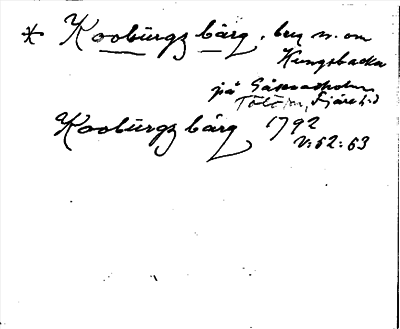 * Kooburgz bärg, berg n. om
Kungsbacka
på Gåsevadholm
Tölö sn, Fjäre hd
Kooburgz bärg 1792
V:52:53